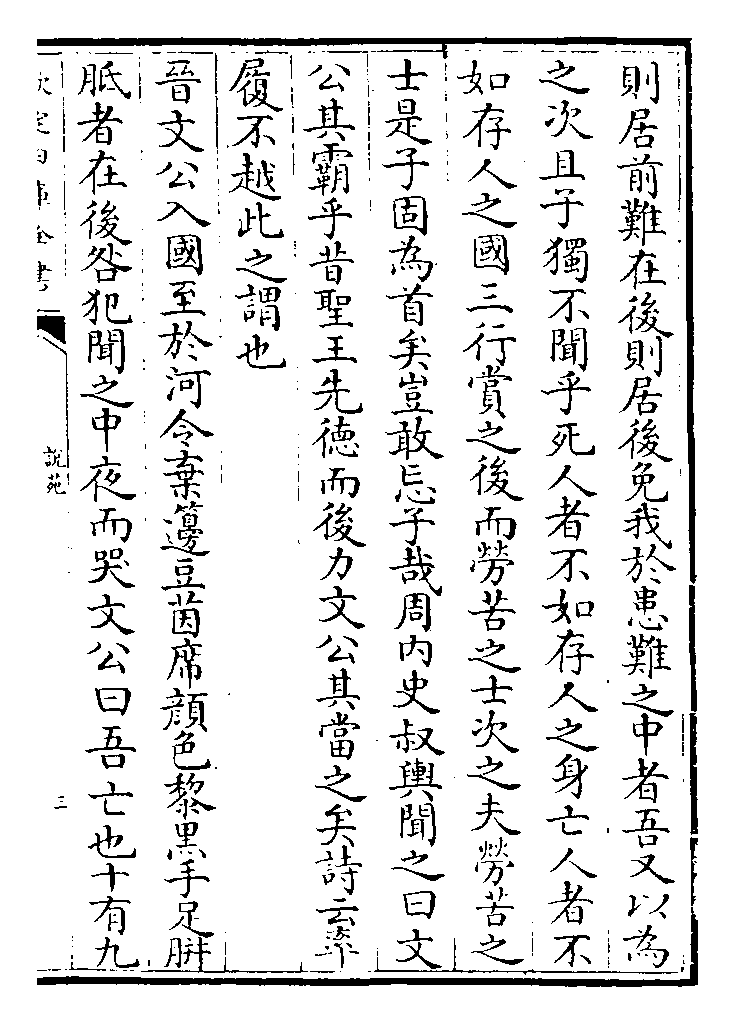 則居前難在後則居後免我於患難之中者吾又以為
之次且子獨不聞乎死人者不如存人之身亡人者不
如存人之國三行賞之後而勞苦之士次之夫勞苦之
士是子固為首矣豈敢忘子哉周内史叔輿聞之曰文
公其霸乎昔聖王先徳而後力文公其當之矣詩云率
履不越此之謂也
晉文公入國至於河令棄籩豆茵席顔色黎黒手足胼
胝者在後咎犯聞之中夜而哭文公曰吾亡也十有九
欽定四庫全書
說苑
三